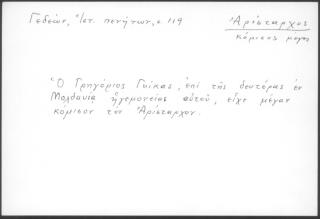 Γεδεών, Ἱστ. πενήτων, σ 119
Ἀρίσταρχος
κόμισος μέγας
Ὁ Γρηγόριος Γκίκας, ἐπὶ τῆς δευτέρας ἐν
Μολδαυΐᾳ ἡγεμονείας αὑτοῦ, εἶχε μέγαν
κόμισον τὸν Ἀρίσταρχον.